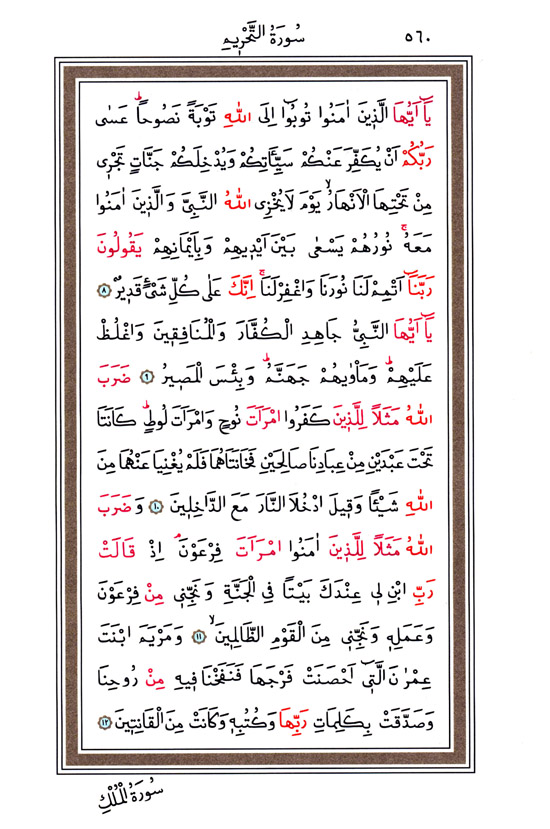 سُورَةُ التَّحْرِيمِ ٥٦٠
يَٓا اَيُّهَا الَّذٖينَ اٰمَنُوا تُوبُٓوا اِلَى اللّٰهِ تَوْبَةً نَصُوحاًؕ عَسٰى
رَبُّكُمْ اَنْ يُكَفِّرَ عَنْكُمْ سَيِّـَٔاتِكُمْ وَيُدْخِلَكُمْ جَنَّاتٍ تَجْرٖى
مِنْ تَحْتِهَا الْاَنْهَارُۙ يَوْمَ لَايُخْزِى اللّٰهُ النَّبِىَّ وَالَّذٖينَ اٰمَنُوا
مَعَهُۚ نُورُهُمْ يَسْعٰى بَيْنَ اَيْدٖيهِمْ وَبِاَيْمَانِهِمْ يَقُولُونَ
رَبَّنَٓا اَتْمِمْ لَنَا نُورَنَا وَاغْفِرْلَنَاۚ اِنَّكَ عَلٰى كُلِّ شَىْءٍ قَدٖيرٌ ٨
يَٓا اَيُّهَا النَّبِىُّ جَاهِدِ الْكُفَّارَ وَالْمُنَافِقٖينَ وَاغْلُظْ
عَلَيْهِمْؕ وَمَاْوٰيهُمْ جَهَنَّمُؕ وَبِئْسَ الْمَصٖيرُ ٩ ضَرَبَ
اللّٰهُ مَثَلاً لِلَّذٖينَ كَفَرُوا امْرَاَتَ نُوحٍ وَامْرَاَتَ لُوطٍؕ كَانَتَا
تَحْتَ عَبْدَيْنِ مِنْ عِبَادِنَا صَالِحَيْنِ فَخَانَتَاهُمَا فَلَمْ يُغْنِيَا عَنْهُمَا مِنَ
اللّٰهِ شَيْـٔاً وَقٖيلَ ادْخُلَا النَّارَ مَعَ الدَّاخِلٖينَ ١٠ وَضَرَبَ
اللّٰهُ مَثَلاً لِلَّذٖينَ اٰمَنُوا امْرَاَتَ فِرْعَوْنَۘ اِذْ قَالَتْ
رَبِّ ابْنِ لٖى عِنْدَكَ بَيْتاً فِى الْجَنَّةِ وَنَجِّنٖى مِنْ فِرْعَوْنَ
وَعَمَلِهٖ وَنَجِّنٖى مِنَ الْقَوْمِ الظَّالِمٖينَۙ ١١ وَمَرْيَمَ ابْنَتَ
عِمْرٰنَ الَّتٖٓى اَحْصَنَتْ فَرْجَهَا فَنَفَخْنَا فٖيهِ مِنْ رُوحِنَا
وَصَدَّقَتْ بِكَلِمَاتِ رَبِّهَا وَكُتُبِهٖ وَكَانَتْ مِنَ الْقَانِتٖينَ ١٢
سُورَةُ الْمُلْكِ